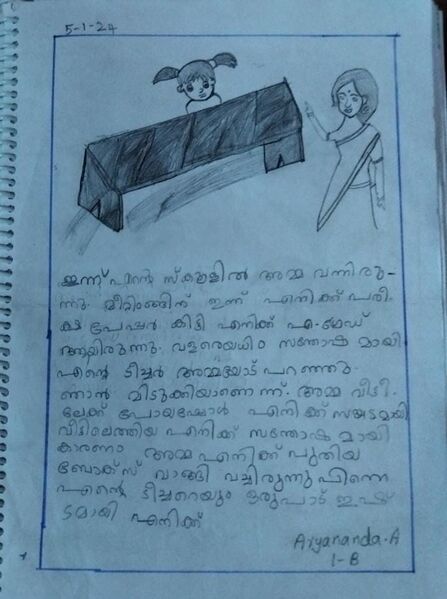 5-1-24
ഇന്ന് എന്റെ സ്കൂളിൽ അമ്മ വന്നിരു-
ന്നു. മീറ്റിംങ്ങിന് ഇന്ന് എനിക്ക് പരീ-
ക്ഷ പ്രേപ്പർ കിട്ടി എനിക്ക് എ-ഗ്രേഡ്
ആയിരുന്നു. വളരെയധിം സന്തോഷ മായി
എന്റെ ടീച്ചർ അമ്മയോട് പറഞ്ഞതു
ഞാൻ മിടുക്കിയാണൊന്ന്. അമ്മ വീട്ടി
ലേക്ക് പോയപ്പോൾ എനിക്ക് സങ്കടമായി
വീട്ടിലെത്തിയ എനിക്ക് സന്തോഷ മായി
കാരണാ അമ്മ എനിക്ക് പുതിയ
ബോക്സ് വാങ്ങി വച്ചിരുന്നു പിന്നെ
എന്റെ ടീച്ചറെയും ഒരുപാട് ഇഷ്
ടമായി എനിക്ക്
Aryananda.A
1-B